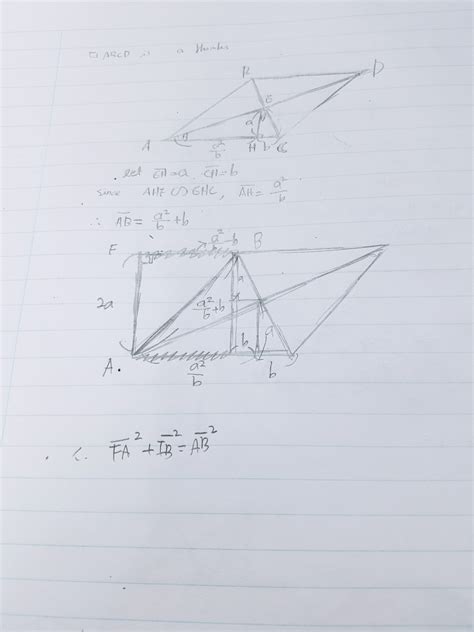 ▱ABCD is a rhombus
B D
E
a
A θ H b C
a²/b
let EH=a, CH=b
since AHE ∽ EHC, AH = a²/b
∴ AB = a²/b + b
F a²/b - b B
a
2a a²/b + b
b a
A. a²/b b
∴ FA² + FB² = AB²